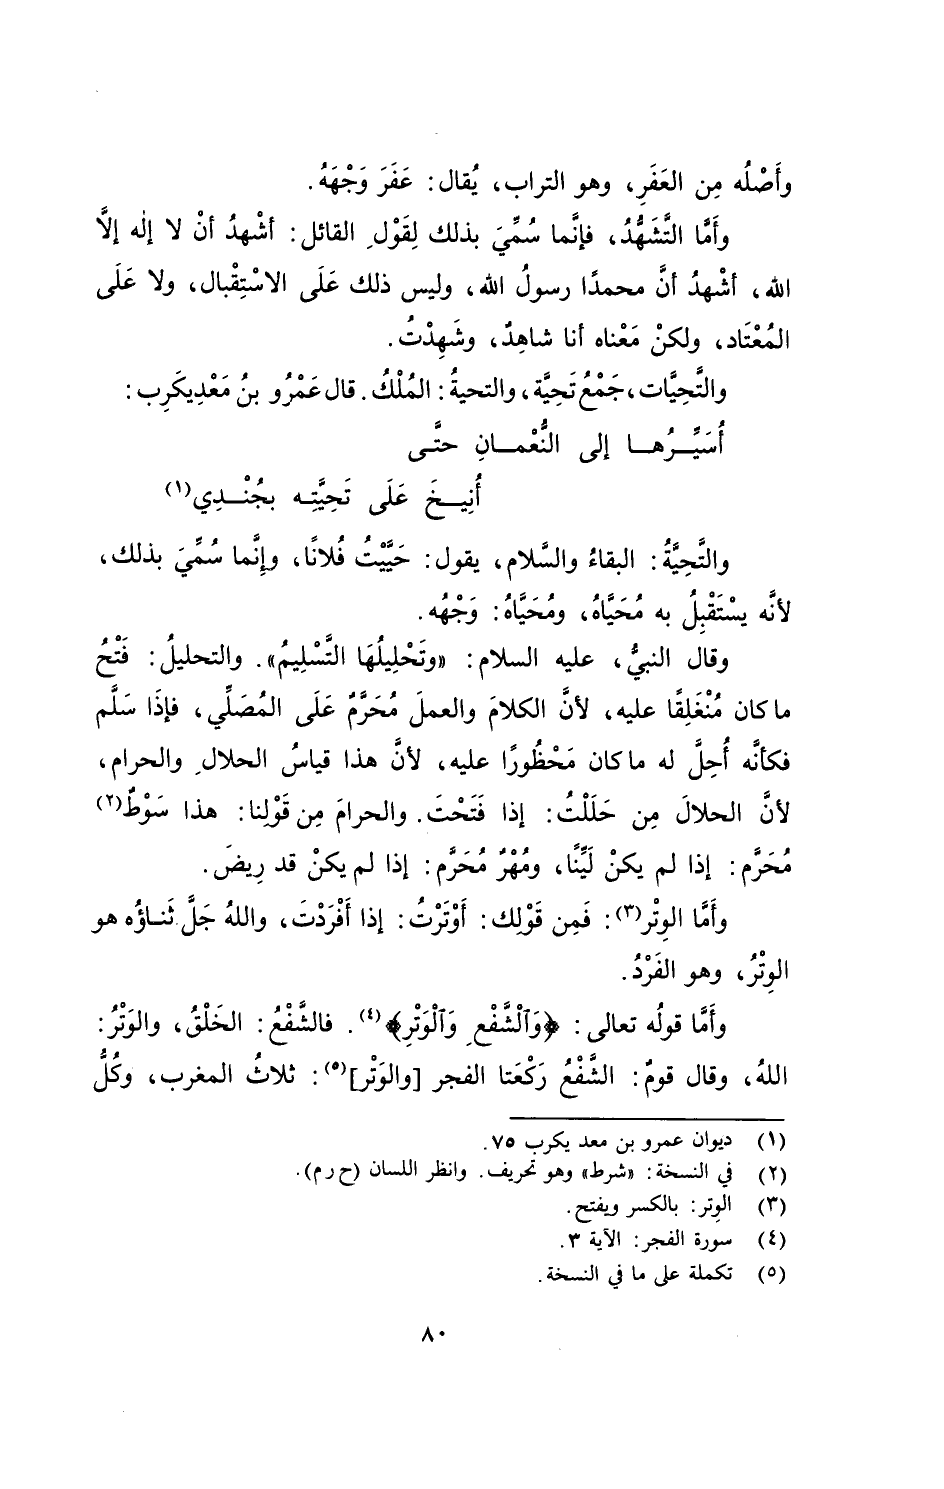 وأَصْلُه مِن العَفَرِ، وهو التراب، يُقال: عَفَرَ وَجْهَهُ.
وأَمَّا التَّشَهُّدُ، فإنَّما سُمِّيَ بذلك لِقَوْلِ القائل: أشْهدُ أنْ لا إلٰه إلاَّ
الله، أشْهدُ أنَّ محمدًا رسولُ الله، وليس ذلك عَلَى الاسْتِقْبال، ولا عَلَى
المُعْتَاد، ولكنْ مَعْناه أنا شاهِدٌ، وشَهِدْتُ.
والتَّحِيَّات، جَمْعُ تَحِيَّة، والتحيةُ: المُلْكُ. قال عَمْرُو بنُ مَعْدِيكَرِب:
أُسَيِّـرُهـا إلى النُّعْمـانِ حتَّـى
أُنِيـخَ عَلَى تَحِيَّتِـه بجُنْـدِي(١)
والتَّحِيَّةُ: البقاءُ والسَّلام، يقول: حَيَّيْتُ فُلانًا، وإِنَّما سُمِّيَ بذلك،
لأنَّه يسْتَقْبِلُ به مُحَيَّاهُ، ومُحَيَّاهُ: وَجْهُه.
وقال النبيُّ، عليه السلام: «وتَحْلِيلُهَا التَّسْلِيمُ». والتحليلُ: فَتْحُ
ما كان مُنْغَلِقًا عليه، لأنَّ الكلامَ والعملَ مُحَرَّمٌ عَلَى المُصَلِّي، فإذَا سَلَّم
فكأنَّه أُحِلَّ له ما كان مَحْظُورًا عليه، لأنَّ هذا قياسُ الحلالِ والحرام،
لأنَّ الحلالَ مِن حَلَلْتُ: إذا فَتَحْتَ. والحرامَ مِن قَوْلِنا: هذا سَوْطٌ(٢)
مُحَرَّم: إذا لم يكنْ لَيِّنًا، ومُهْرٌ مُحَرَّم: إذا لم يكنْ قد رِيضَ.
وأَمَّا الوِتْر(٣): فَمِن قَوْلِك: أَوْتَرْتُ: إذا أَفْرَدْتَ، واللهُ جَلَّ ثَنـاؤُه هو
الوِتْرُ، وهو الفَرْدُ.
وأَمَّا قولُه تعالى: ﴿وَٱلْشَّفْعِ وَٱلْوَتْرِ﴾(٤). فالشَّفْعُ: الخَلْقُ، والوَتْرُ:
اللهُ، وقال قومٌ: الشَّفْعُ رَكْعَتا الفجر [والوَتْر](٥): ثلاثُ المغرب، وكُلُّ
(١) ديوان عمرو بن معد يكرب ٧٥.
(٢) في النسخة: «شرط» وهو تحريف. وانظر اللسان (ح ر م).
(٣) الوتر: بالكسر ويفتح.
(٤) سورة الفجر: الآية ٣.
(٥) تكملة على ما في النسخة.
٨٠